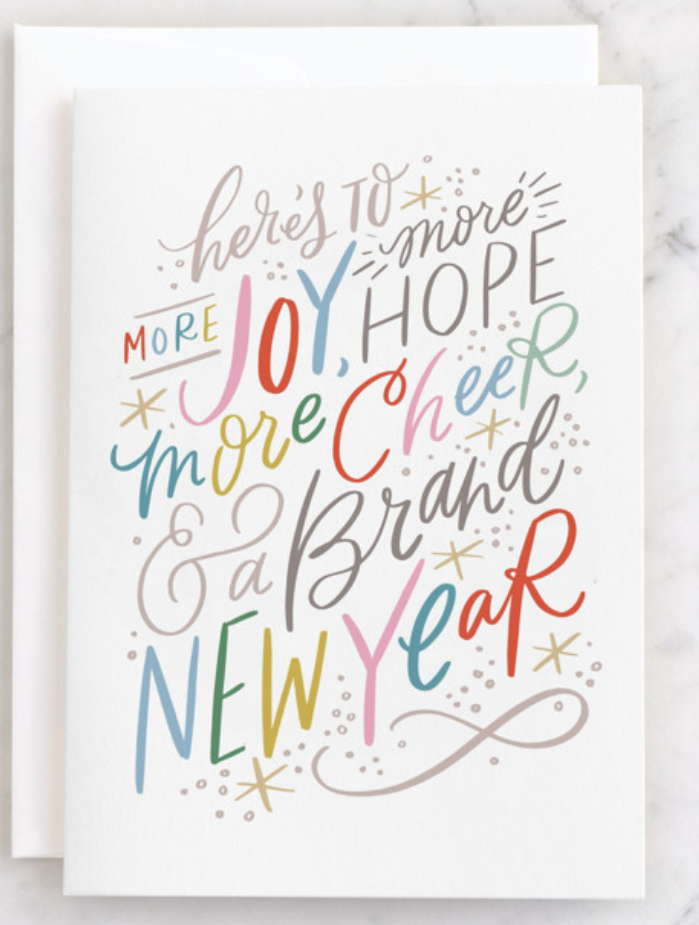 here's TO
MORE JOY, more HOPE
more CheeR,
& a Brand
NEW YeaR